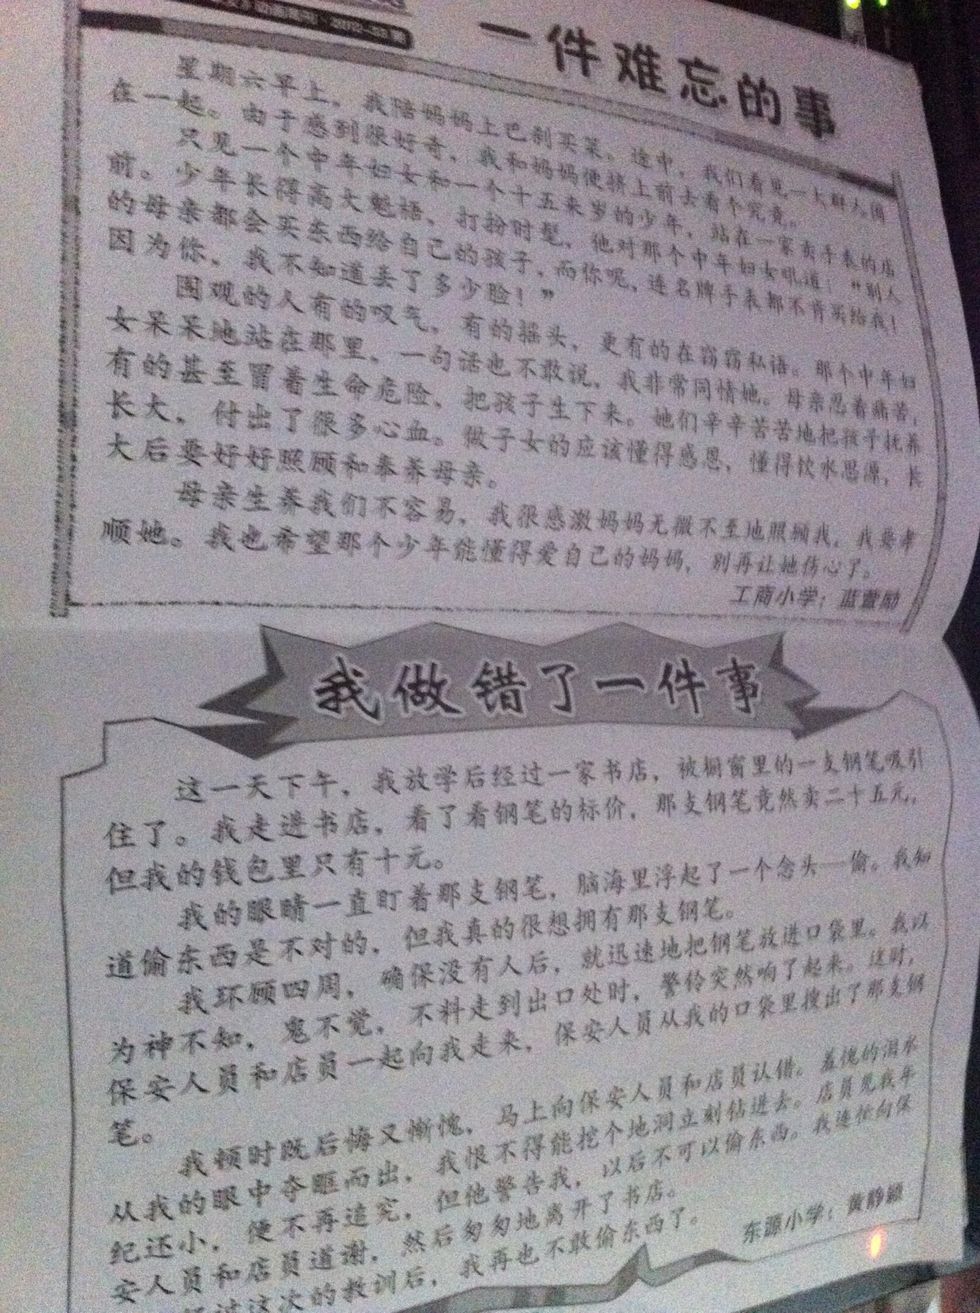 一件难忘的事
星期六早上，我陪妈妈上巴刹买菜。途中，我们看见一大群人围
在一起。由于感到很好奇，我和妈妈便挤上前去看个究竟。
只见一个中年妇女和一个十五来岁的少年，站在一家卖手表的店
前。少年长得高大魁梧，打扮时髦，他对那个中年妇女吼道：“别人
的母亲都会买东西给自己的孩子，而你呢，连名牌手表都不肯买给我！
因为你，我不知道丢了多少脸！”
围观的人有的叹气，有的摇头，更有的在窃窃私语。那个中年妇
女呆呆地站在那里，一句话也不敢说，我非常同情她。母亲忍着痛苦，
有的甚至冒着生命危险，把孩子生下来。她们辛辛苦苦地把孩子抚养
长大，付出了很多心血。做子女的应该懂得感恩，懂得饮水思源，长
大后要好好照顾和奉养母亲。
母亲生养我们不容易，我很感激妈妈无微不至地照顾我，我要孝
顺她。我也希望那个少年能懂得爱自己的妈妈，别再让她伤心了。
工商小学：蓝萱励
我做错了一件事
这一天下午，我放学后经过一家书店，被橱窗里的一支钢笔吸引
住了。我走进书店，看了看钢笔的标价，那支钢笔竟然卖二十五元，
但我的钱包里只有十元。
我的眼睛一直盯着那支钢笔，脑海里浮起了一个念头─偷。我知
道偷东西是不对的，但我真的很想拥有那支钢笔。
我环顾四周，确保没有人后，就迅速地把钢笔放进口袋里。我以
为神不知，鬼不觉，不料走到出口处时，警铃突然响了起来。这时，
保安人员和店员一起向我走来，保安人员从我的口袋里搜出了那支钢
笔。
我顿时既后悔又惭愧，马上向保安人员和店员认错。羞愧的泪水
从我的眼中夺眶而出，我恨不得能挖个地洞立刻钻进去。店员见我年
纪还小，便不再追究，但他警告我，以后不可以偷东西。我连忙向保
安人员和店员道谢，然后匆匆地离开了书店。
经过这次的教训后，我再也不敢偷东西了。
东源小学：黄静颖